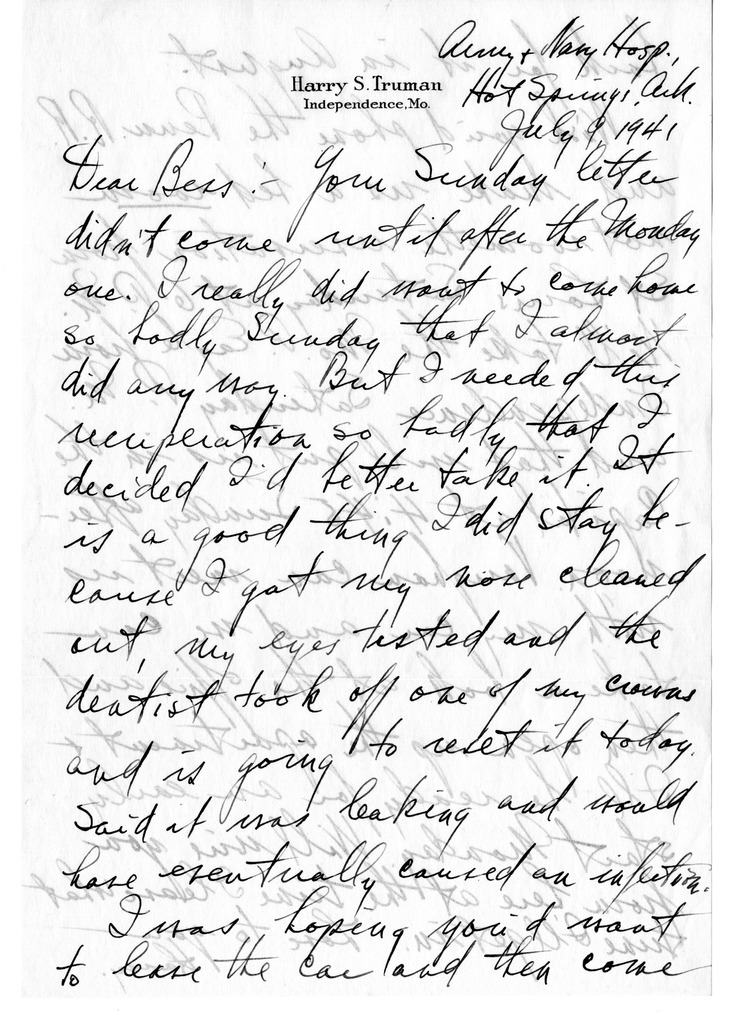 Army & Navy Hosp.,
Harry S. Truman
Independence, Mo.
Hot Springs, Ark.
July 9, 1941
Dear Bess:- Your Sunday letter
didn't come until after the Monday
one. I really did want to come home
so badly Sunday that I almost
did any way. But I needed this
recuperation so badly that I
decided I'd better take it. It
is a good thing I did stay be-
cause I got my nose cleaned
out, my eyes tested and the
dentist took off one of my crowns
and is going to reset it today.
Said it was leaking and would
have eventually caused an infection.
I was hoping you'd want
to lease the car and then come